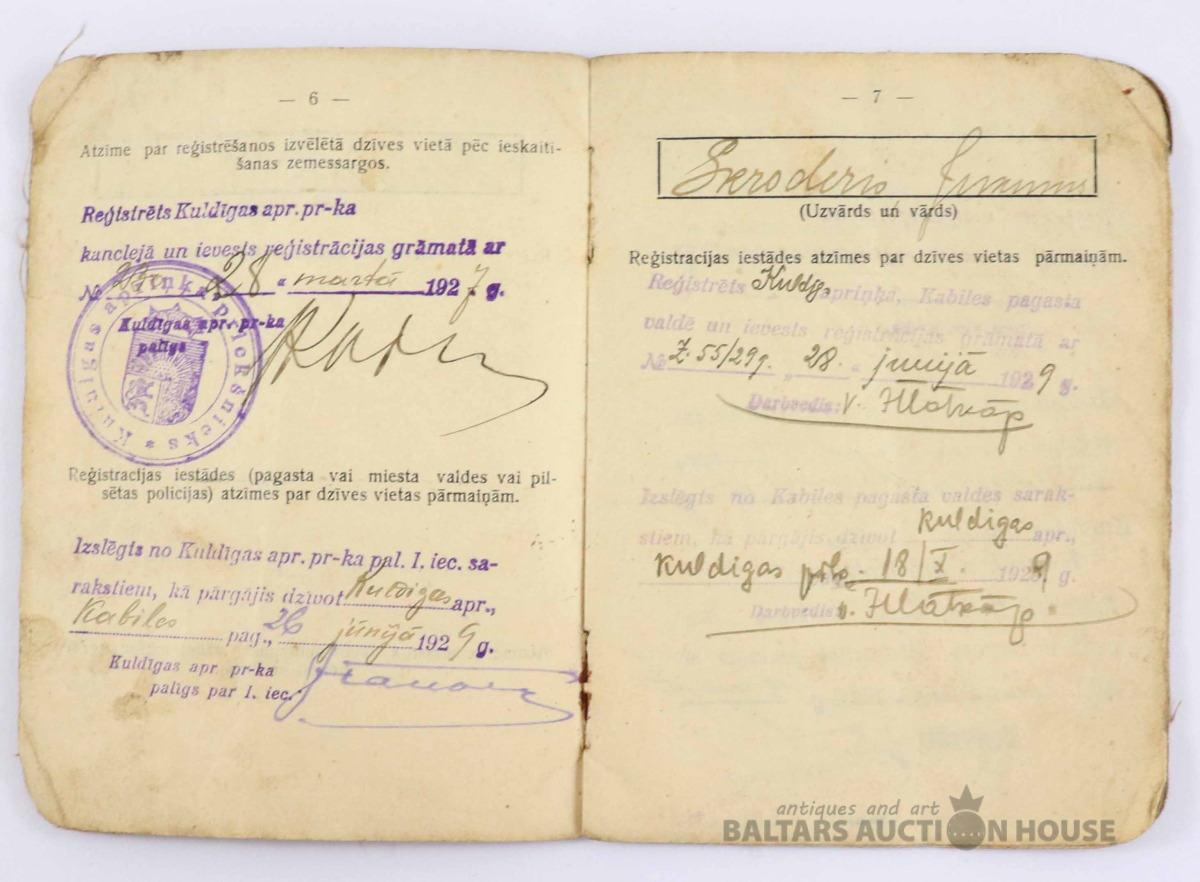 — 6 —
Atzīme par reģistrēšanos izvēlētā dzīves vietā pēc ieskaiti-
šanas zemessargos.
Reģistrēts Kuldīgas apr. pr-ka
kanclejā un ievests reģistrācijas grāmatā ar
№ „ 28 “ martā 1927 g.
Kuldīgas apr. pr-ka
palīgs
Kuldīgas apriņķa priekšnieks *
Reģistracijas iestādes (pagasta vai miesta valdes vai pil-
sētas policijas) atzīmes par dzīves vietas pārmaiņām.
Izslēgts no Kuldīgas apr. pr-ka pal. I. iec. sa-
rakstiem, kā pārgājis dzīvot Kuldīgas apr.,
Kabiles pag., 26 jūnijā 1929 g.
Kuldīgas apr pr-ka
palīgs par I. iec.
— 7 —
(Uzvārds un vārds)
Reģistracijas iestādes atzīmes par dzīves vietas pārmaiņām.
Reģistrēts Kuldīgas apriņķa, Kabiles pagasta
valdē un ievests reģistrācijas grāmatā ar
№ 2. 55/29g. „ 28. “ junijā 1929 g.
Darbvedis: v.
Izslēgts no Kabiles pagasta valdes sarak-
stiem, kā pārgājis dzīvot kuldigas apr.,
kuldigas pils. 18/X. 1929 g.
Darbvedis: v.
antiques and art
BALTARS AUCTION HOUSE